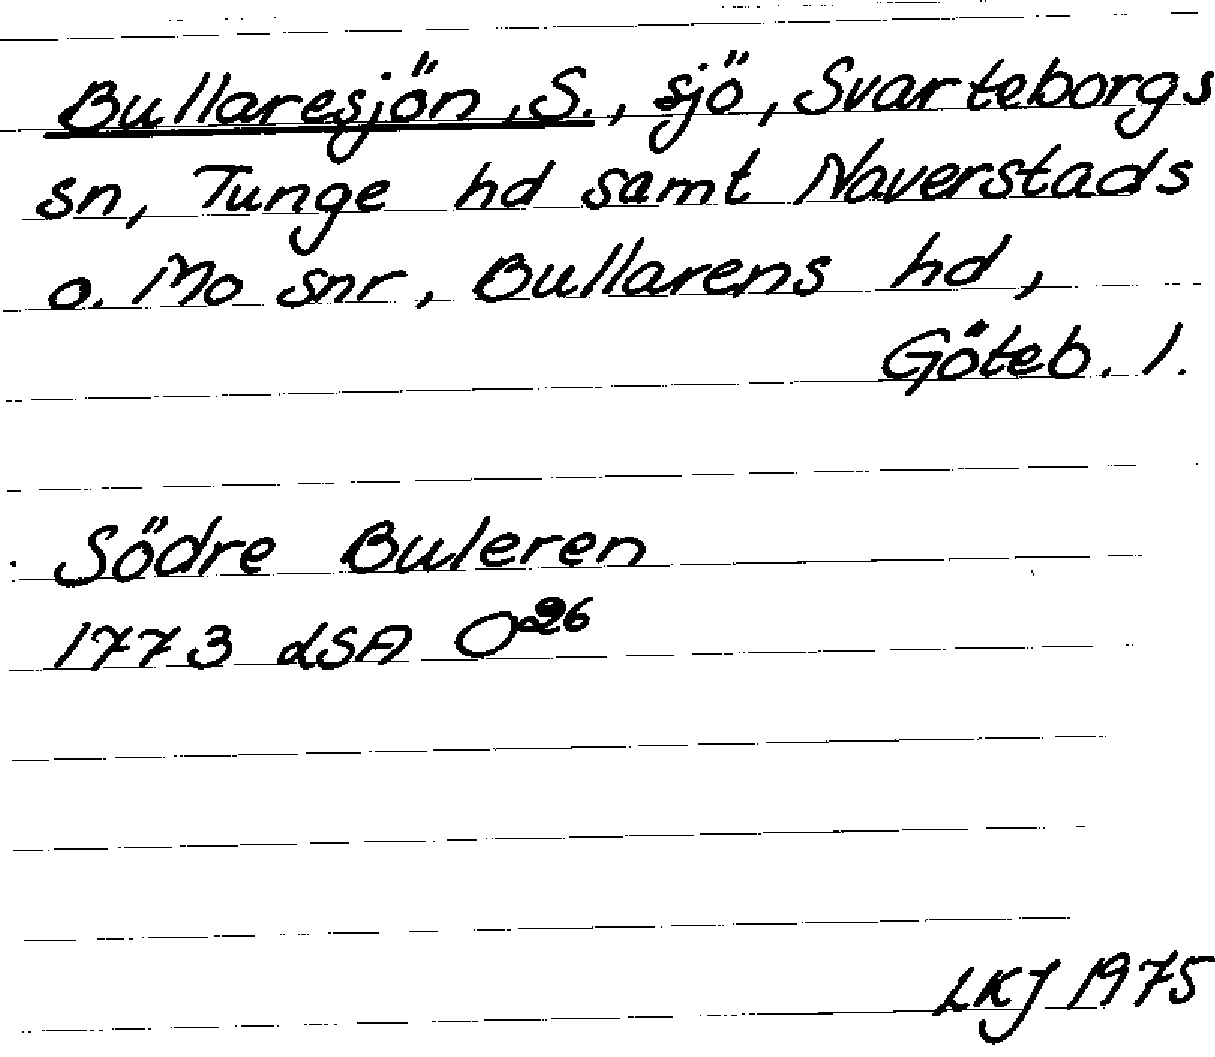 Bullaresjön, S., sjö, Svarteborgs
sn, Tunge hd samt Naverstads
o. Mo snr, Bullarens hd,
Göteb. l.
Södre Buleren
1773 LSA O26
LKJ 1975